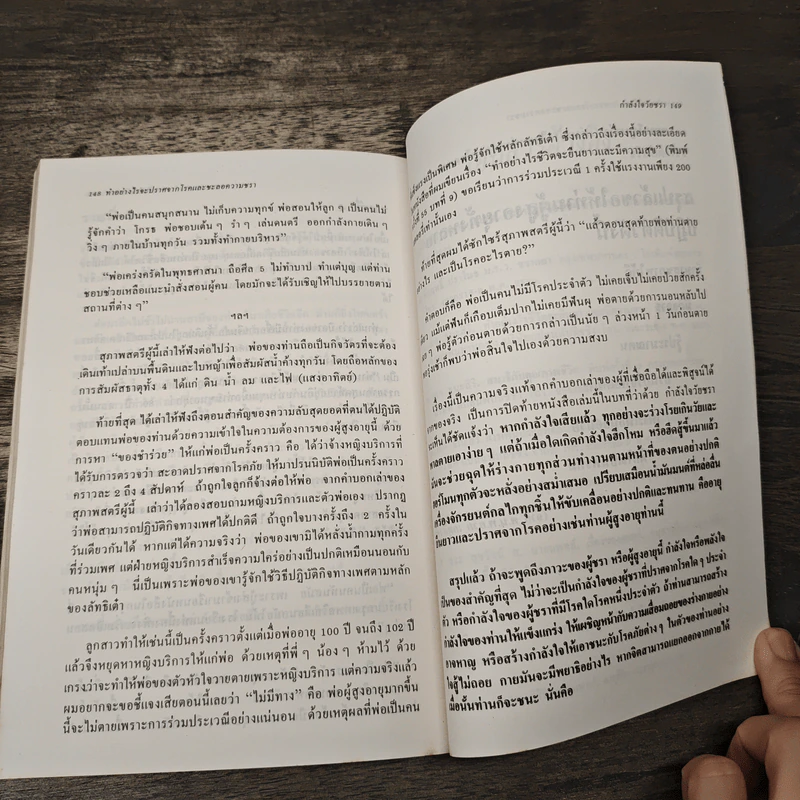 148 ทำอย่างไรจะปราศจากโรคและชะลอความชรา
“พ่อเป็นคนสนุกสนาน ไม่เก็บความทุกข์ พ่อสอนให้ลูก ๆ เป็นคนไม่
รู้จักคำว่า โกรธ พ่อชอบเต้น ๆ รำ ๆ เล่นดนตรี ออกกำลังกายเดิน ๆ
วิ่ง ๆ ภายในบ้านทุกวัน รวมทั้งทำกายบริหาร”
“พ่อเคร่งครัดในพุทธศาสนา ถือศีล 5 ไม่ทำบาป ทำแต่บุญ แต่ท่าน
ชอบช่วยเหลือแนะนำสั่งสอนผู้คน โดยมักจะได้รับเชิญให้ไปบรรยายตาม
สถานที่ต่าง ๆ”
ฯลฯ
สุภาพสตรีผู้นี้เล่าให้ฟังต่อไปว่า พ่อของท่านถือเป็นกิจวัตรที่จะต้อง
เดินเท้าเปล่าบนพื้นดินและใบหญ้าเพื่อสัมผัสน้ำค้างทุกวัน โดยถือหลักของ
การสัมผัสธาตุทั้ง 4 ได้แก่ ดิน น้ำ ลม และไฟ (แสงอาทิตย์)
ท้ายที่สุด ได้เล่าให้ฟังถึงตอนสำคัญของความลับสุดยอดที่ตนได้ปฏิบัติ
ตอบแทนพ่อของท่านด้วยความเข้าใจในความต้องการของผู้สูงอายุนี้ ด้วย
การหา “ของชำร่วย” ให้แก่พ่อเป็นครั้งคราว คือ ได้ว่าจ้างหญิงบริการที่
ได้รับการตรวจว่า สะอาดปราศจากโรคภัย ให้มาปรนนิบัติพ่อเป็นครั้งคราว
คราวละ 2 ถึง 4 สัปดาห์ ถ้าถูกใจลูกก็จ้างต่อให้พ่อ จากคำบอกเล่าของ
สุภาพสตรีผู้นี้ เล่าว่าได้ลองสอบถามหญิงบริการและตัวพ่อเอง ปรากฏ
ว่าพ่อสามารถปฏิบัติกิจทางเพศได้ปกติดี ถ้าถูกใจบางครั้งถึง 2 ครั้งใน
วันเดียวกันได้ หากแต่ได้ความจริงว่า พ่อของเขามิได้หลั่งน้ำกามทุกครั้ง
ที่ร่วมเพศ แต่ฝ่ายหญิงบริการสำเร็จความใคร่อย่างเป็นปกติเหมือนนอนกับ
คนหนุ่ม ๆ นี่เป็นเพราะพ่อของเขารู้จักใช้วิธีปฏิบัติกิจทางเพศตามหลัก
ของลัทธิเต๋า
ลูกสาวทำให้เช่นนี้เป็นครั้งคราวตั้งแต่เมื่อพ่ออายุ 100 ปี จนถึง 102 ปี
แล้วจึงหยุดหาหญิงบริการให้แก่พ่อ ด้วยเหตุที่พี่ ๆ น้อง ๆ ห้ามไว้ ด้วย
เกรงว่าจะทำให้พ่อของตัวหัวใจวายตายเพราะหญิงบริการ แต่ความจริงแล้ว
ผมอยากจะขอชี้แจงเสียตอนนี้เลยว่า “ไม่มีทาง” คือ พ่อผู้สูงอายุมากขึ้น
นี้จะไม่ตายเพราะการร่วมประเวณีอย่างแน่นอน ด้วยเหตุผลที่พ่อเป็นคน
กำลังใจวัยชรา 149
แข็งแรงเป็นพิเศษ พ่อรู้จักใช้หลักลัทธิเต๋า ซึ่งกล่าวถึงเรื่องนี้อย่างละเอียด
หนังสือที่ผมเขียนเรื่อง “ทำอย่างไรชีวิตจะยืนยาวและมีความสุข” (พิมพ์
55 บทที่ 9) ขอเรียนว่าการร่วมประเวณี 1 ครั้งใช้แรงงานเพียง 200
เท่านั้นเอง
ท้ายที่สุดผมได้ซักไซร้สุภาพสตรีผู้นี้ว่า “แล้วตอนสุดท้ายพ่อท่านตาย
อย่างไร และเป็นโรคอะไรตาย?”
คำตอบก็คือ พ่อเป็นคนไม่มีโรคประจำตัว ไม่เคยเจ็บไม่เคยป่วยสักครั้ง
แม้แต่ฟันก็เกือบเต็มปากไม่เคยมีฟันผุ พ่อตายด้วยการนอนหลับไป
ๆ พ่อรู้ตัวก่อนตายด้วยการกล่าวเป็นนัย ๆ ล่วงหน้า 1 วันก่อนตาย
รุ่งเช้าก็พบว่าพ่อสิ้นใจไปเองด้วยความสงบ
เรื่องนี้เป็นความจริงแท้จากคำบอกเล่าของผู้ที่เชื่อถือได้และพิสูจน์ได้
ของจริง เป็นการปิดท้ายหนังสือเล่มนี้ในบทที่ว่าด้วย กำลังใจวัยชรา
เห็นได้ชัดแจ้งว่า หากกำลังใจเสียแล้ว ทุกอย่างจะร่วงโรยเกินวัยและ
ตายเอาง่าย ๆ แต่ถ้าเมื่อใดเกิดกำลังใจฮึกโหม หรือฮึดสู้ขึ้นมาแล้ว
มันจะช่วยฉุดให้ร่างกายทุกส่วนทำงานตามหน้าที่ของตนอย่างปกติ
ฮอร์โมนทุกตัวจะหลั่งอย่างสม่ำเสมอ เปรียบเสมือนน้ำมันมนต์ที่หล่อลื่น
เครื่องจักรยนต์กลไกทุกชิ้นให้ขับเคลื่อนอย่างปกติและทนทาน คืออายุ
ยืนยาวและปราศจากโรคอย่างเช่นท่านผู้สูงอายุท่านนี้
สรุปแล้ว ถ้าจะพูดถึงภาวะของผู้ชรา หรือผู้สูงอายุนี้ กำลังใจหรือพลังใจ
เป็นของสำคัญที่สุด ไม่ว่าจะเป็นกำลังใจของผู้ชราที่ปราศจากโรคใด ๆ ประจำ
ตัว หรือกำลังใจของผู้ชราที่มีโรคใดโรคหนึ่งประจำตัว ถ้าท่านสามารถสร้าง
กำลังใจของท่านให้แข็งแกร่ง ให้ผจญหน้ากับความเสื่อมถอยของร่างกายอย่าง
อาจหาญ หรือสร้างกำลังใจให้เอาชนะกับโรคภัยต่าง ๆ ในตัวของท่านอย่าง
ใจสู้ไม่ถอย กายมันจะมีพยาธิอย่างไร หากจิตสามารถแยกออกจากกายได้
เมื่อนั้นท่านก็จะชนะ นั่นคือ